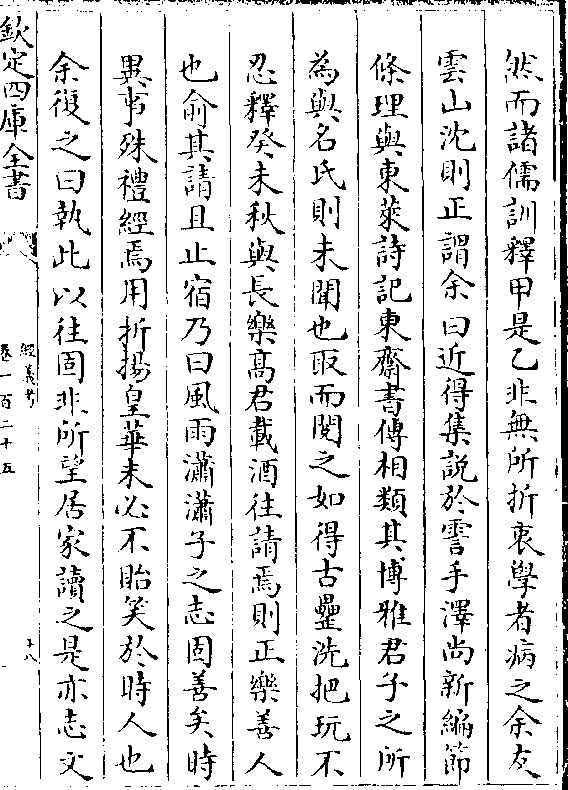 然而諸儒訓釋甲是乙非無所折衷學者病之余友
雲山沈則正謂余曰近得集説於霅手澤尚新編節
條理與東萊詩記東齋書傳相類其博雅君子之所
為與名氏則未聞也取而閱之如得古罍洗把玩不
忍釋癸未秋與長樂高君載酒往請焉則正樂善人
也俞其請且止宿乃曰風雨瀟瀟子之志固善矣時
異事殊禮經焉用折揚皇華未必不貽笑於時人也
余復之曰執此以往固非所望居家讀之是亦志文
欽定四庫全書
經義考
卷一百二十五
十八